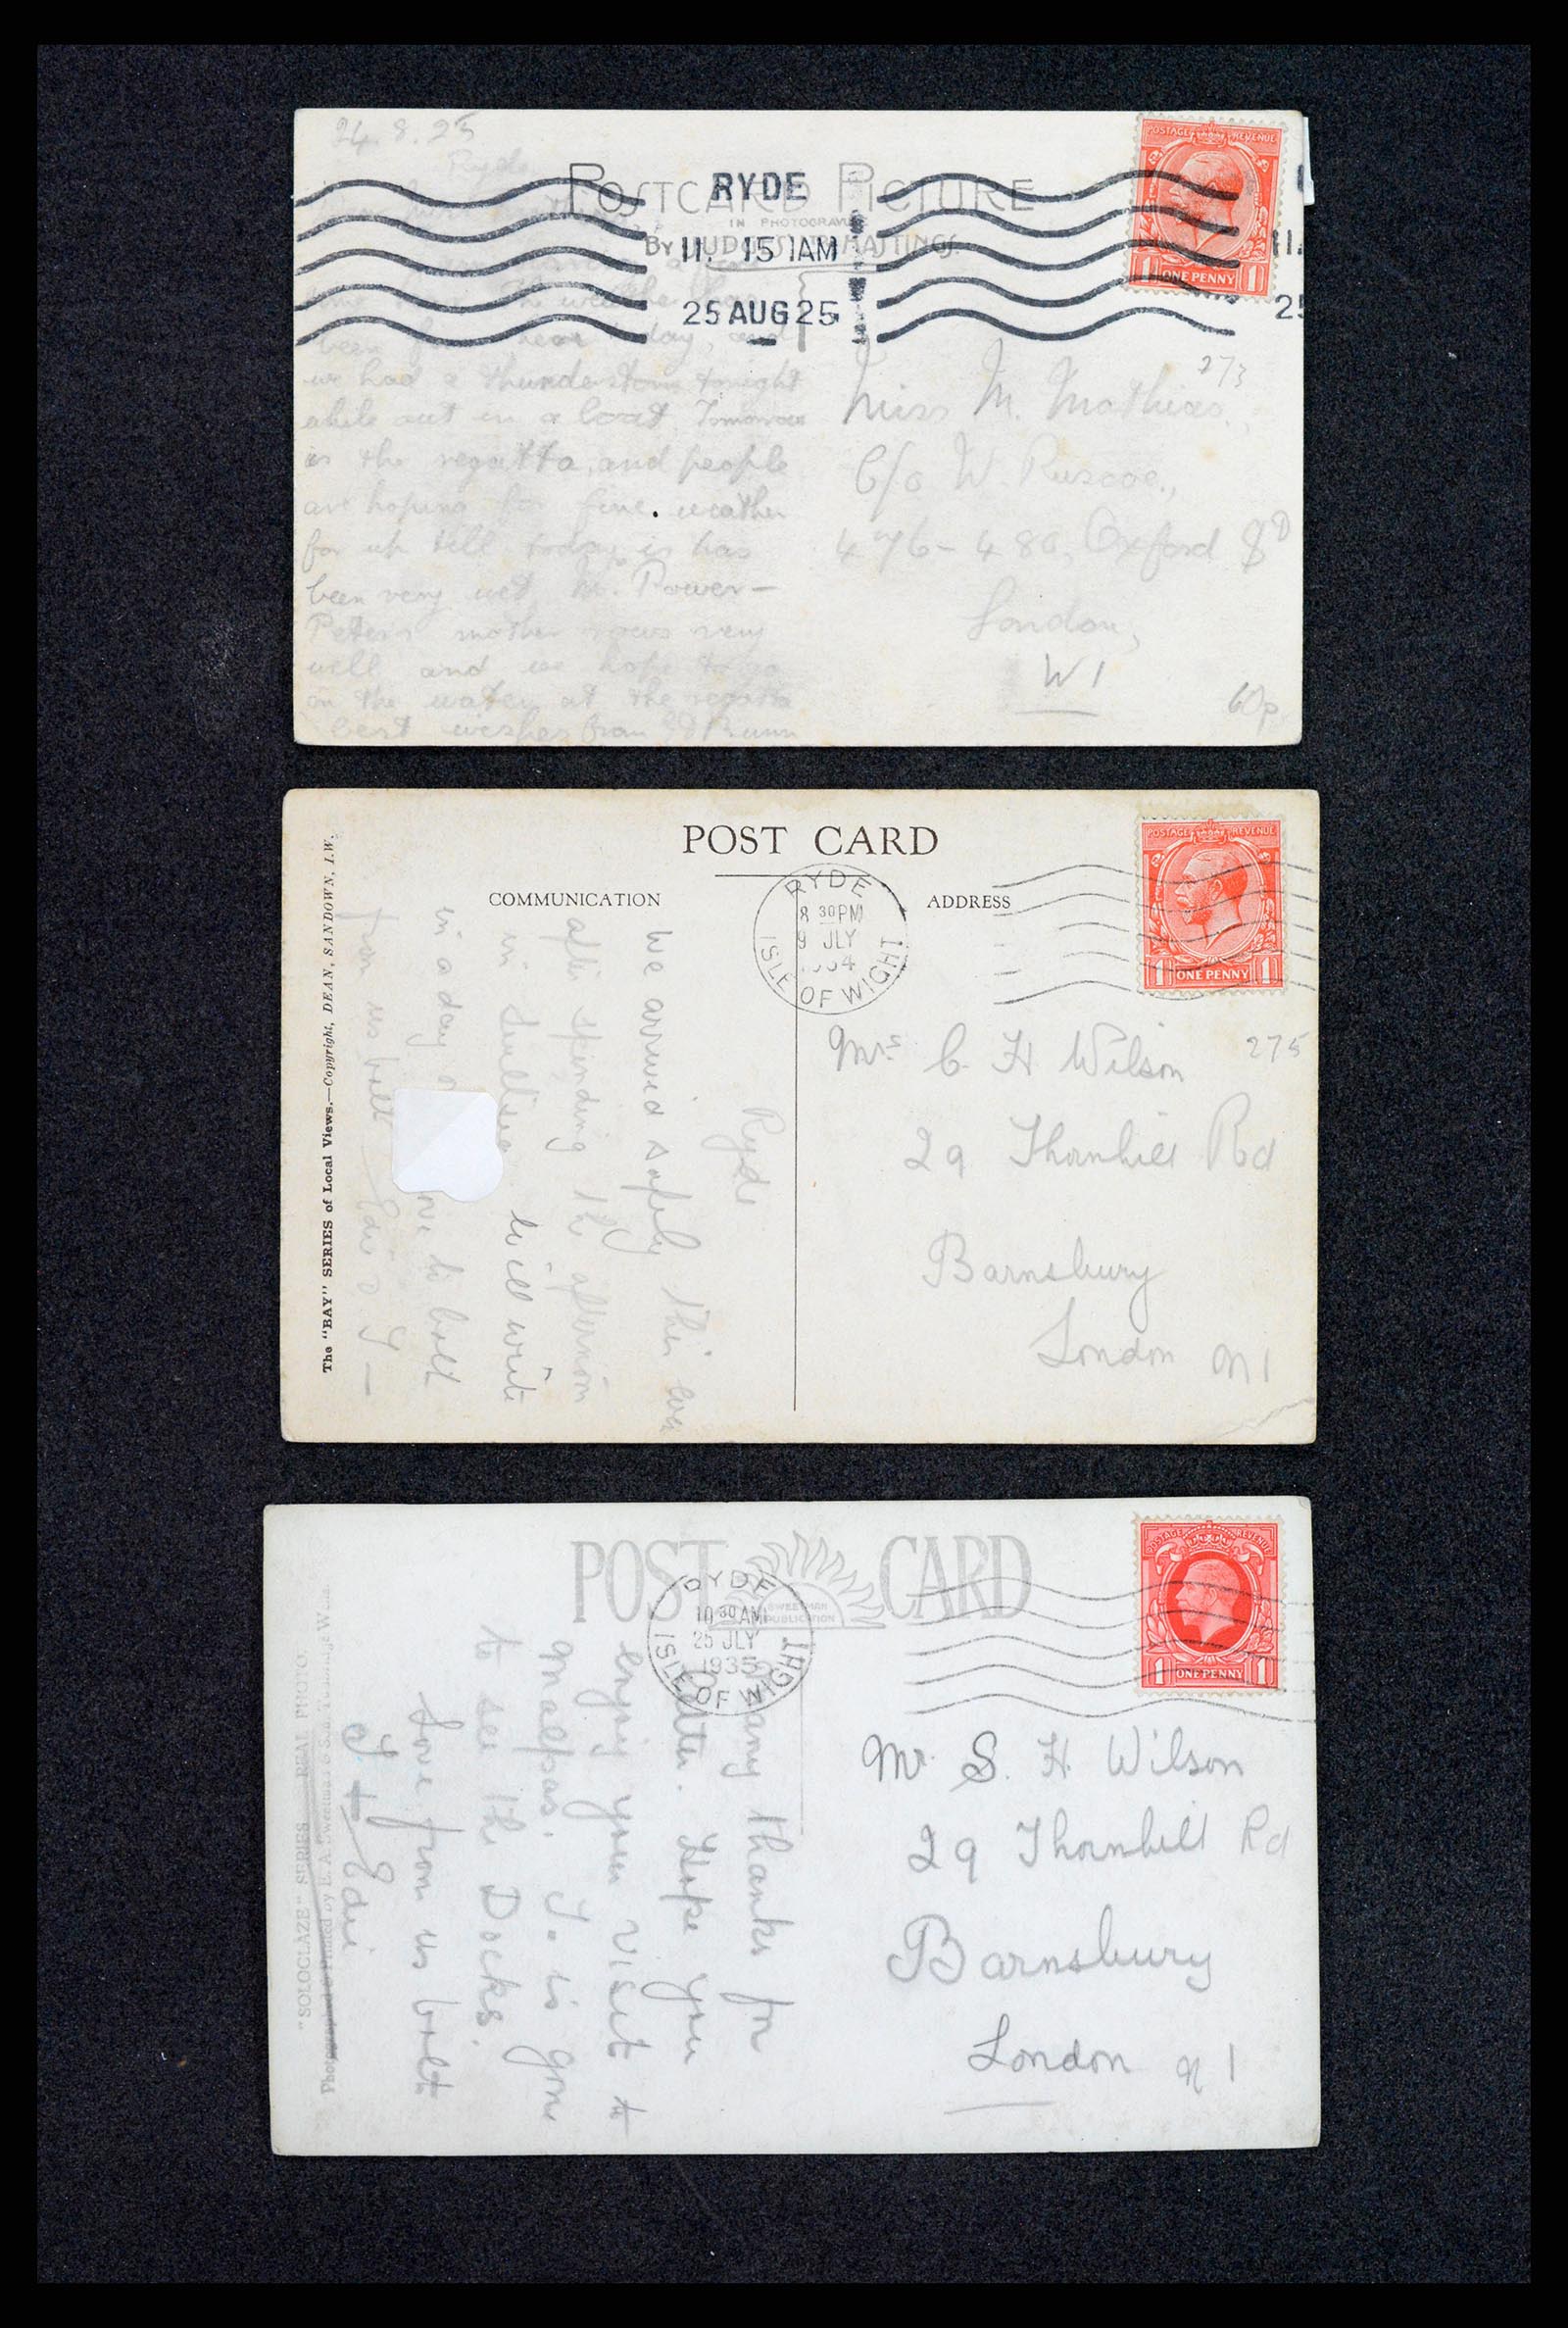 24.8.25
Ryde
POSTCARD PICTURE
IN PHOTOGRAVURE
RYDE
11. 15 AM
25 AUG 25
POSTAGE REVENUE
1 ONE PENNY 1
11.
25
been day, and
we had a thunderstorm tonight
while out in a boat. Tomorrow
is the regatta, and people
are hoping for fine weather
for up till today is has
been very wet. Power—
Peter's mother rows very
well and we hope to go
on the water at the regatta
best wishes from
273
Miss M. Mathias,
C/o W. Ruscoe,
476-480, Oxford St
London,
W1
60p
POST CARD
COMMUNICATION
ADDRESS
RYDE
8 30 PM
9 JLY
ISLE OF WIGHT
POSTAGE REVENUE
1 ONE PENNY 1
The "BAY" SERIES of Local Views.—Copyright, DEAN, SANDOWN, I.W.
Ryde
We arrived safely this eve
after spending the afternoon
in will write
in a day love to both
from us both
275
Mrs C. H Wilson
29 Thornhill Rd
Barnsbury
London N1
POST CARD
SWEETMAN
PUBLICATION
RYDE
10 30 AM
25 JLY
1935
ISLE OF WIGHT
POSTAGE REVENUE
1 ONE PENNY 1
"SOLOGLAZE" SERIES REAL PHOTO.
Many thanks for
letter. Hope you
enjoy your visit to
Malpas. Jo is gone
to see the Docks.
Love from us both
J + Edie
Mr. S. H. Wilson
29 Thornhill Rd
Barnsbury
London N1